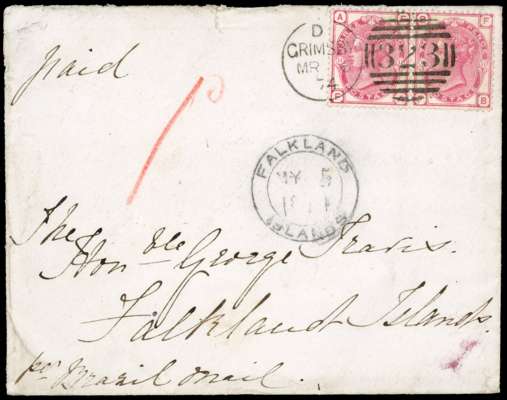 paid
D
GRIMSBY
MR
74
323
FALKLAND
MY 5
ISLANDS
The
Honble George Travis.
Falkland Islands.
per Brazil Mail.